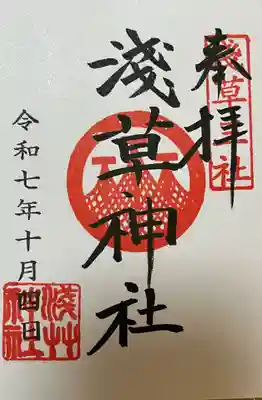 奉拝
淺草神社
令和七年十月四日
淺草神社
淺草神社